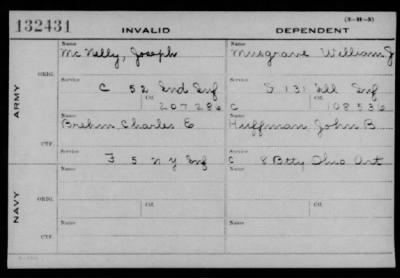 132431 INVALID DEPENDENT (3-H-8)
Name Name
McNelly, Joseph Musgrave William J
ORIG.
Service Service
C 52 Ind Inf G 131 Ill Inf
Ctf. Ctf.
207286 C 108536
ARMY
Name Name
Brehm, Charles E Huffman, John B
CTF.
Service Service
F 5 N Y Inf C 8 Btty Ohio Art
Name Name
ORIG.
Ctf. Ctf.
NAVY
Name Name
CTF.